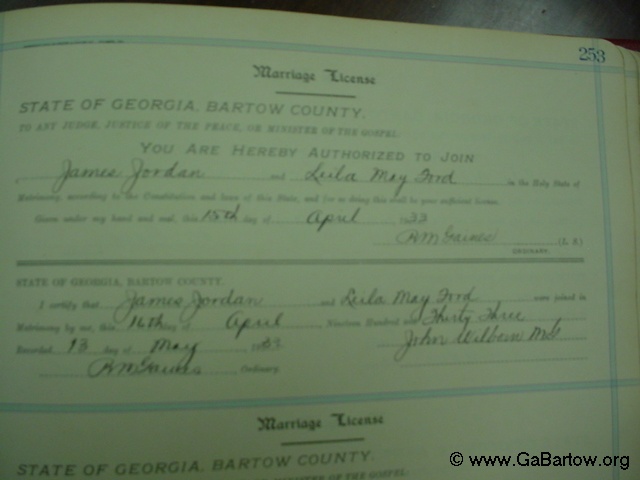 253
Marriage License
STATE OF GEORGIA, BARTOW COUNTY.
TO ANY JUDGE, JUSTICE OF THE PEACE, OR MINISTER OF THE GOSPEL:
YOU ARE HEREBY AUTHORIZED TO JOIN
James Jordan and Leila May Ford in the Holy State of
Matrimony, according to the Constitution and laws of this State, and for so doing this shall be your sufficient license.
Given under my hand and seal, this 15th day of April 1933
R M Gaines (L. S.)
ORDINARY.
STATE OF GEORGIA, BARTOW COUNTY.
I certify that James Jordan and Leila May Ford were joined in
Matrimony by me, this 16th day of April Nineteen Hundred and Thirty Three
Recorded 13 day of May 1933 John
R M Gaines Ordinary.
Marriage License
STATE OF GEORGIA, BARTOW COUNTY.
© www.GaBartow.org